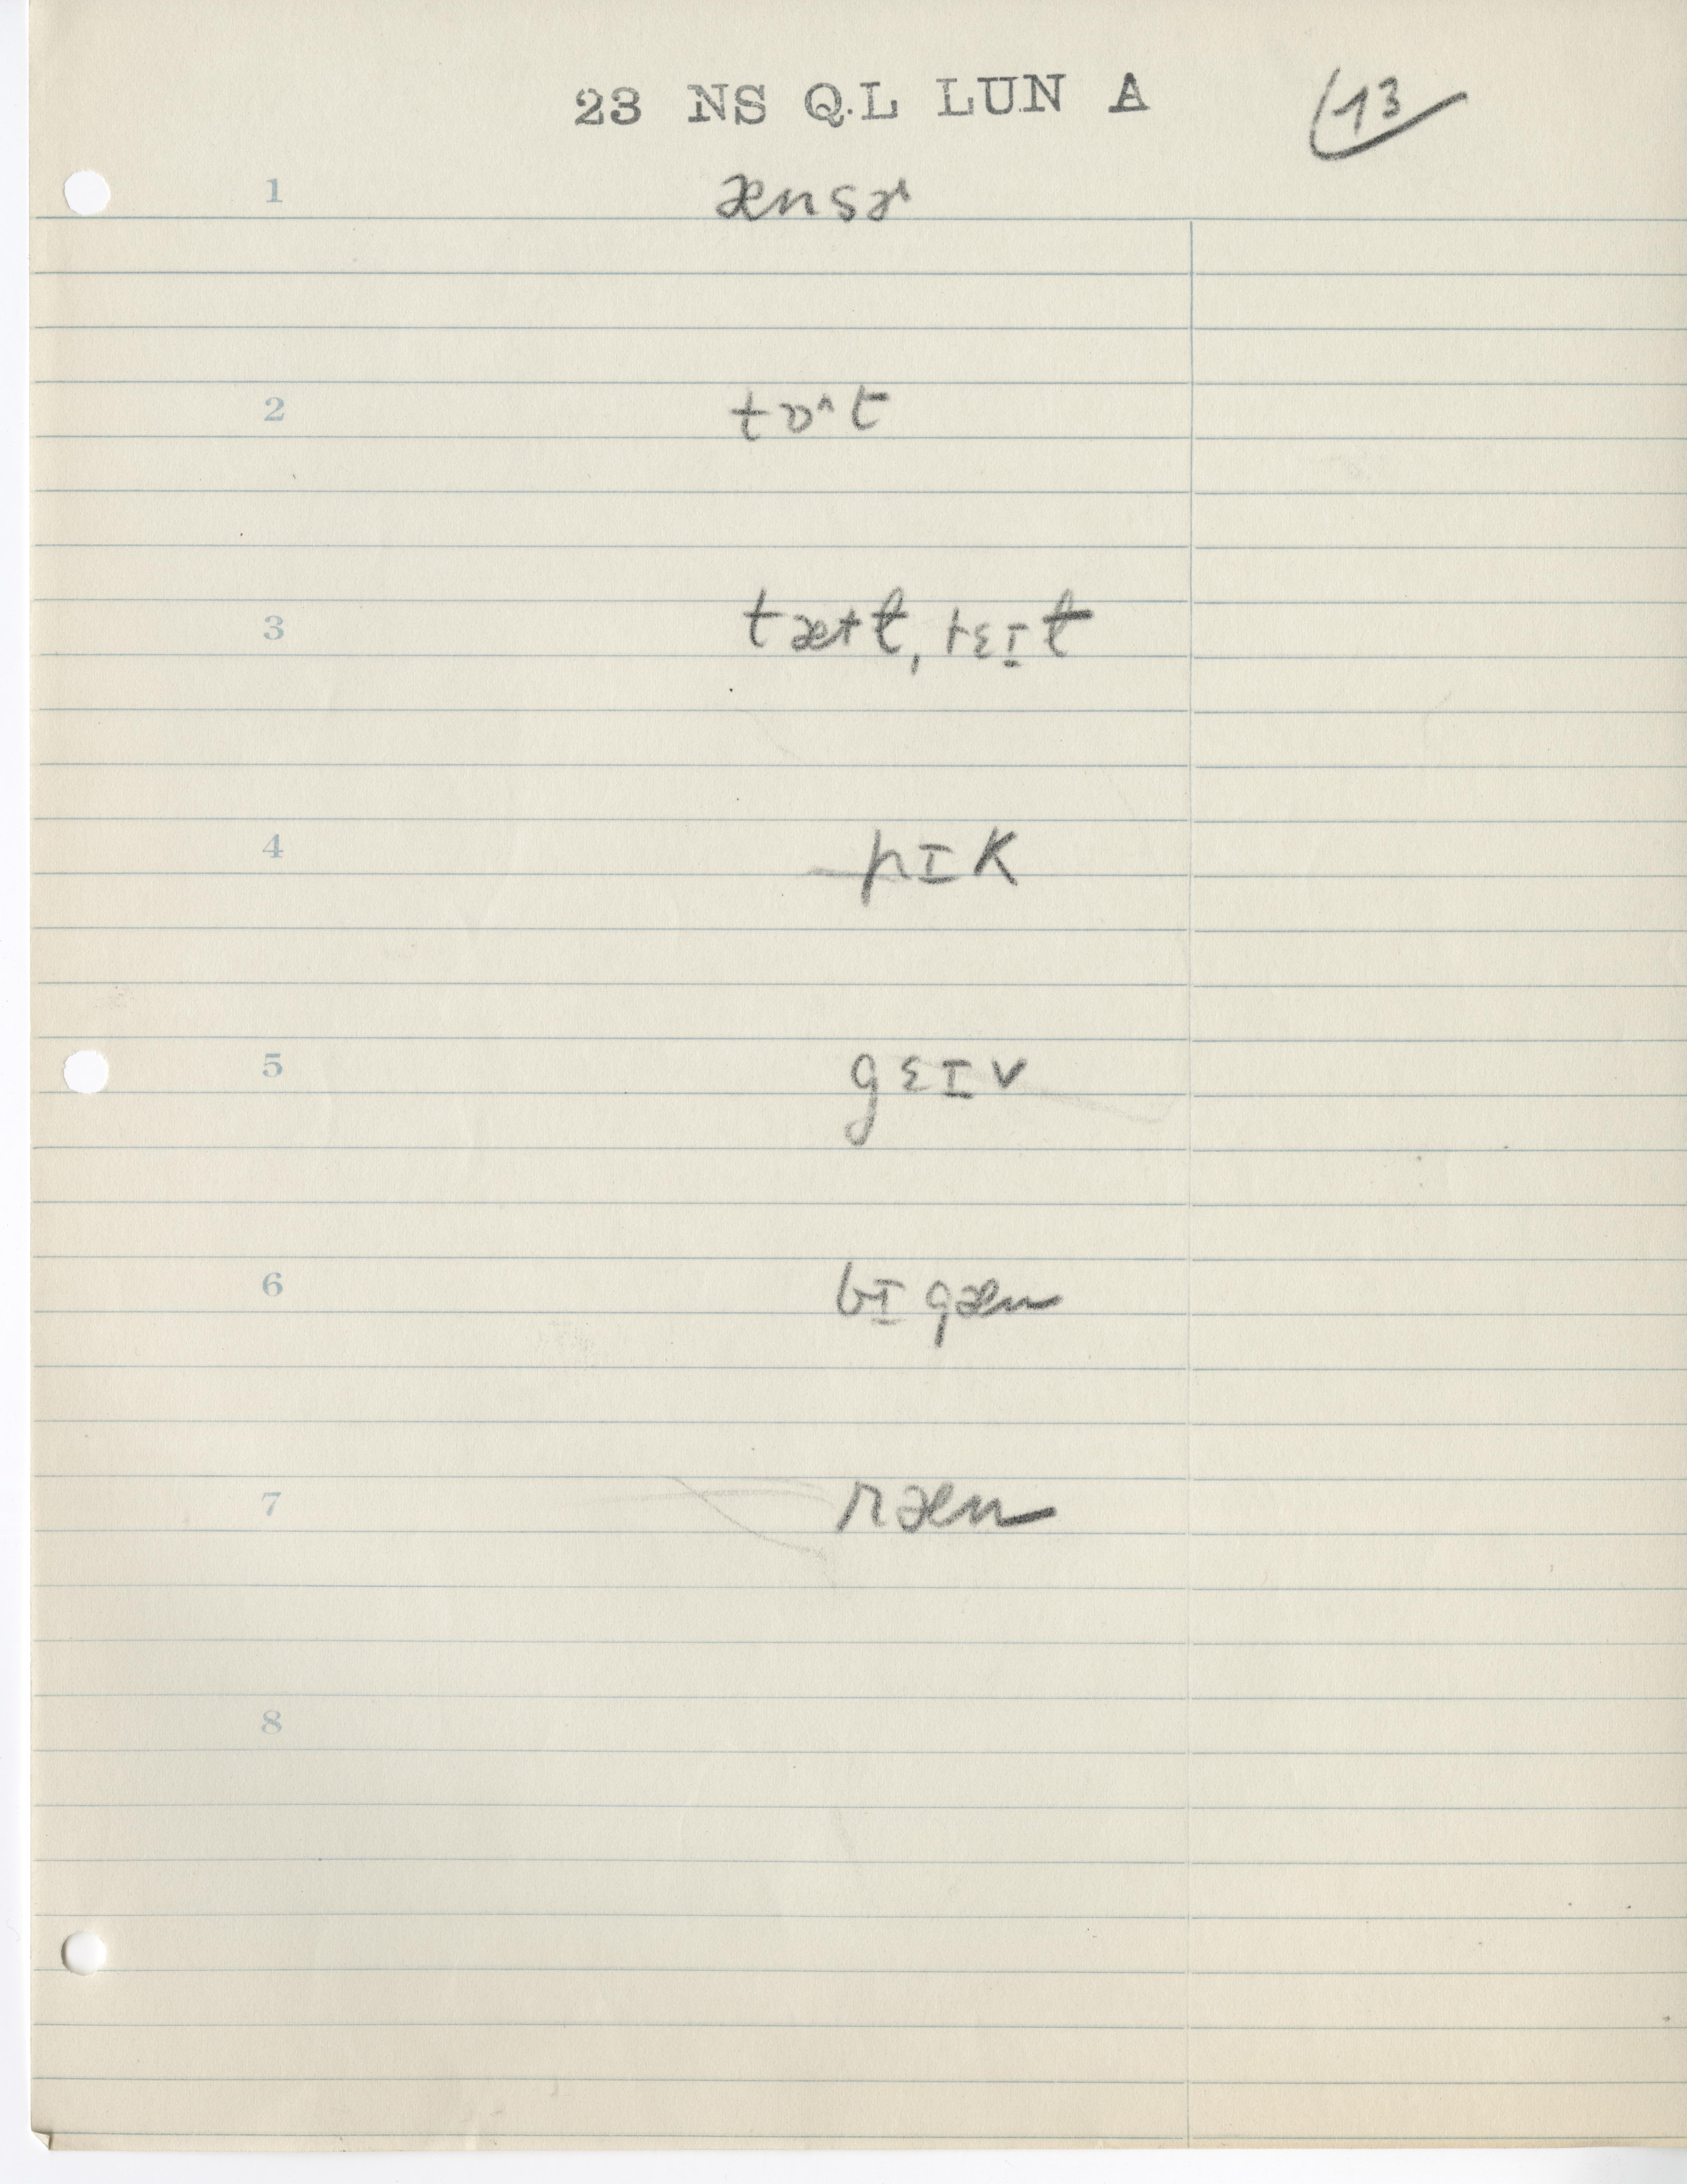 23 NS Q.L LUN A
13
1 ænsɚ
2 tɒ^t
3 tæ+t, tɛɪt
4 pɪk
5 gɛɪv
6 bɪgæn
7 ræn
8